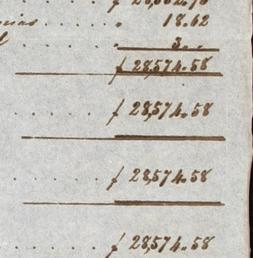 18.62
3..
ƒ 28,574.58
ƒ 28,574.58
ƒ 28,574.58
ƒ 28,574.58